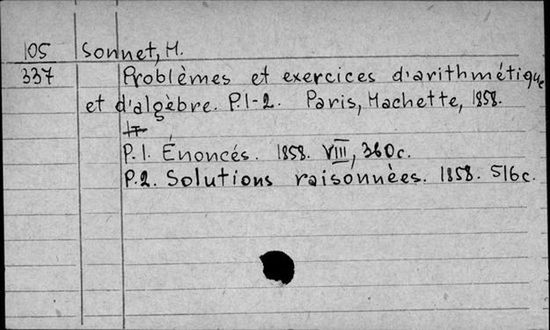 105 Sonnet, H.
337 Problèmes et exercices d'arithmétique
et d'algèbre. P.1-2. Paris, Hachette, 1858.
P.1. Énoncés. 1858. VIII, 360c.
P.2. Solutions raisonnèes. 1858. 516c.